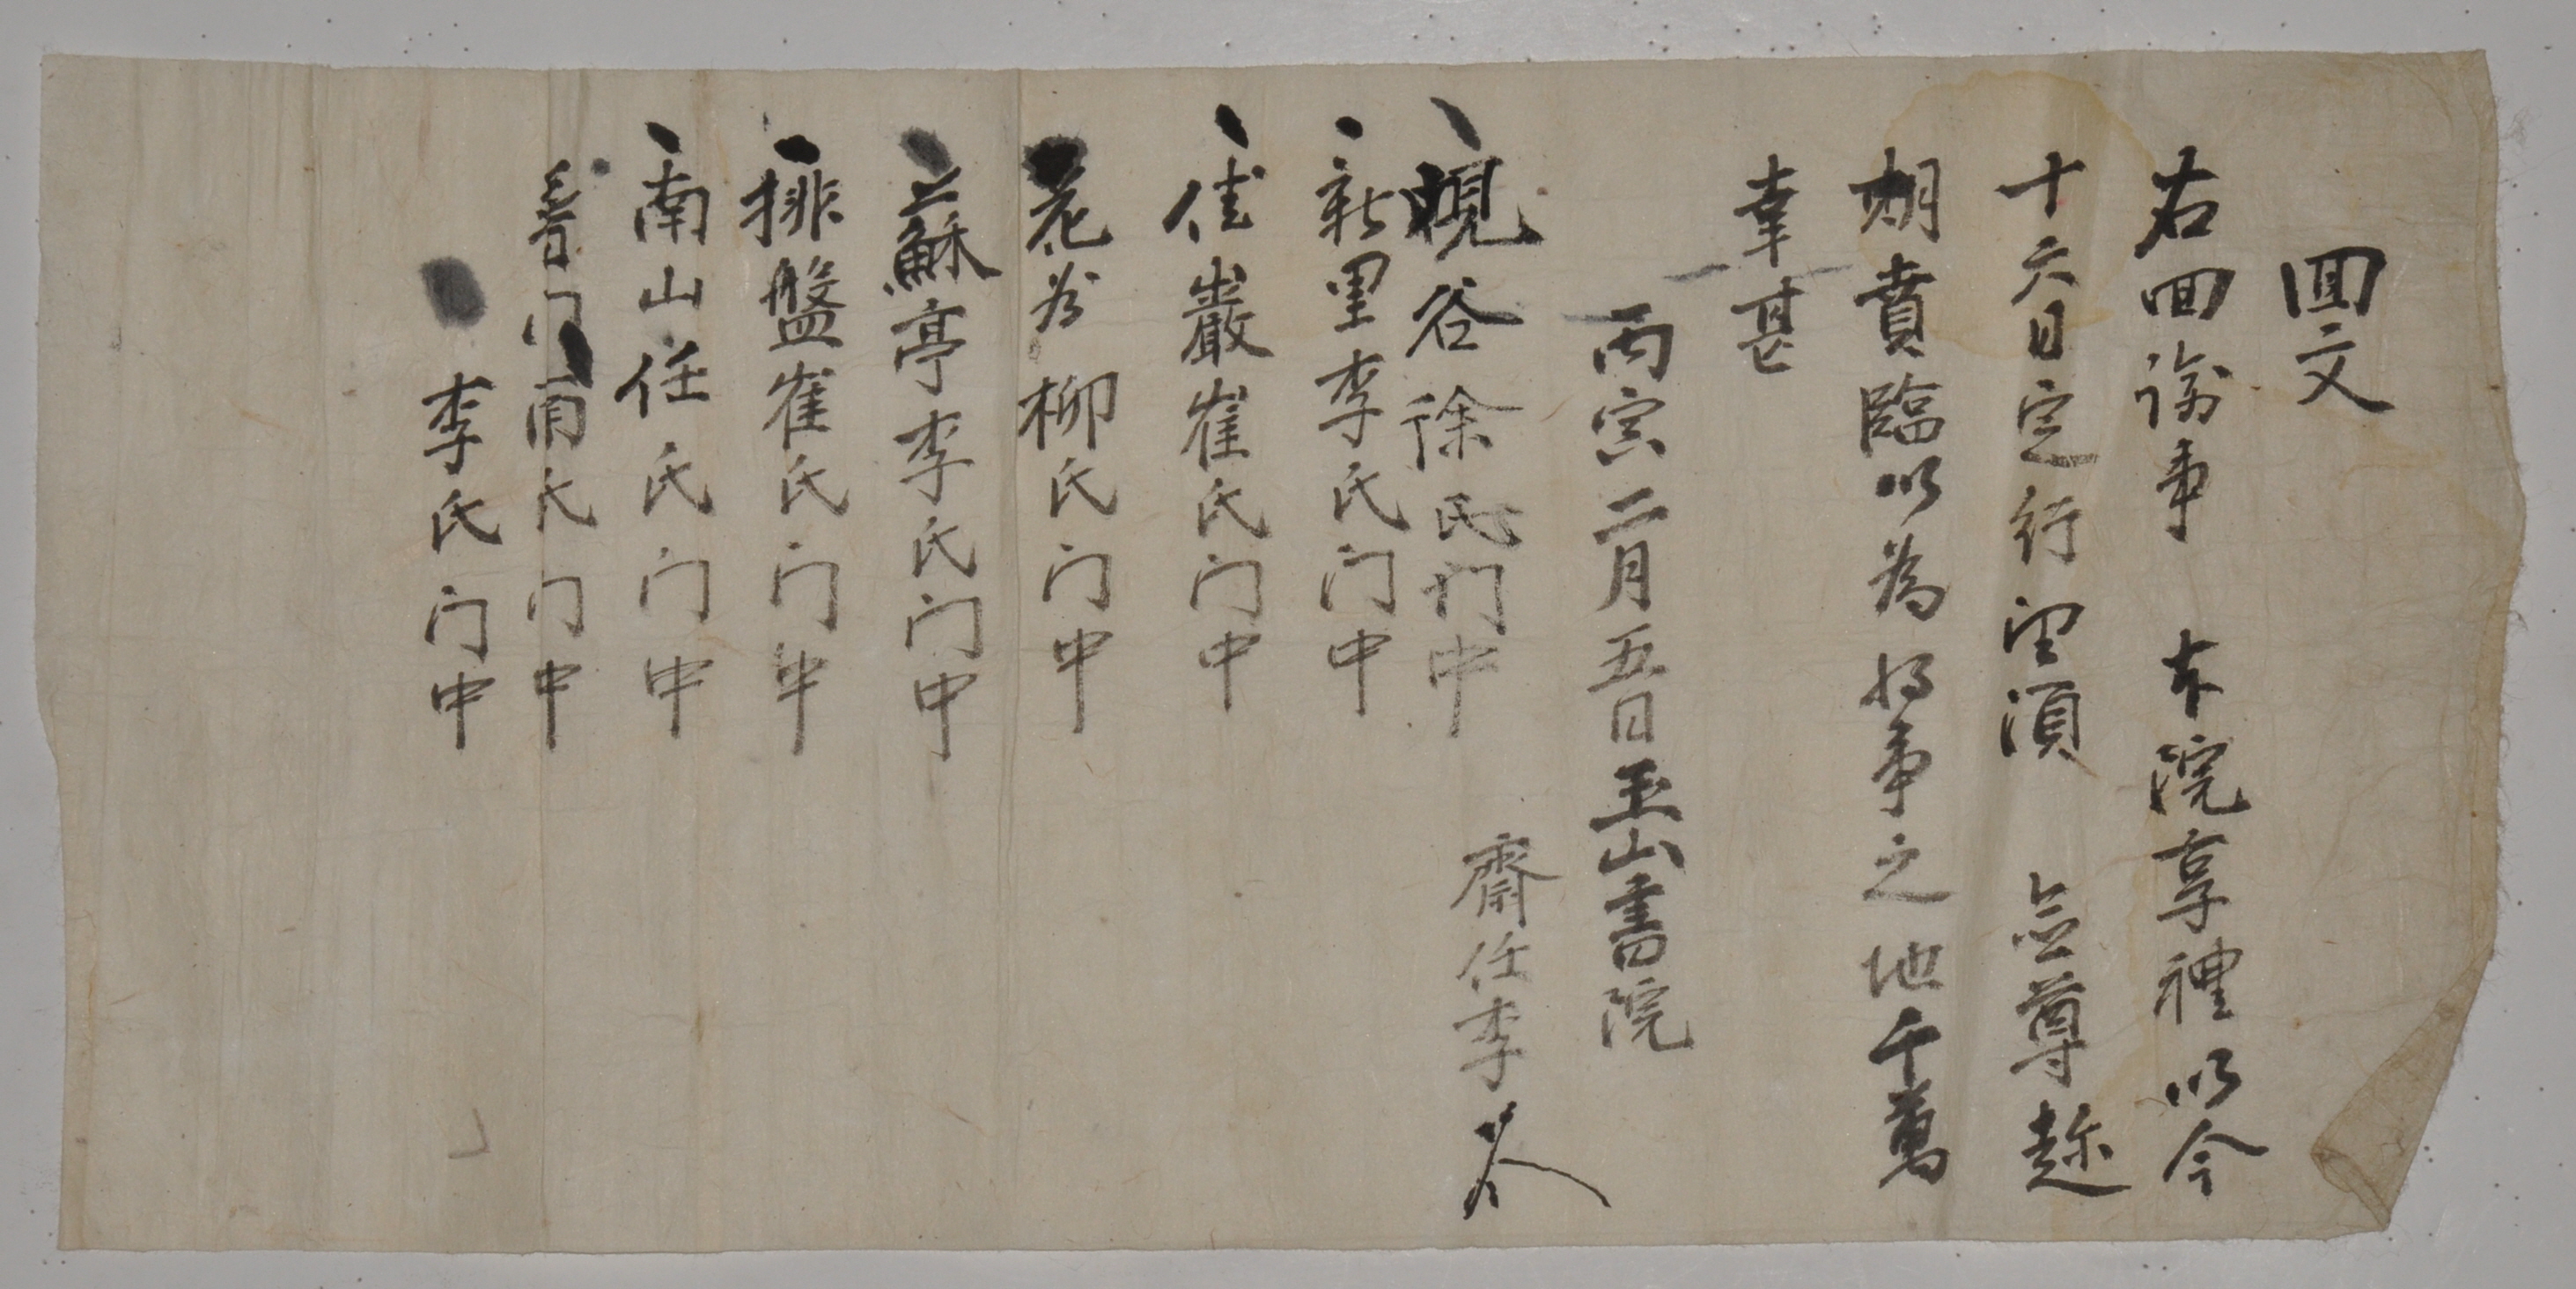 回文
右回諭事 本院享禮以今
十六日定行望須 僉尊趁
期賁臨以為將事之地千萬
幸甚
丙寅二月五日玉山書院
齋任李
硯谷徐氏门中
新里李氏门中
佳巖崔氏门中
花 柳氏门中
蘇亭李氏门中
排盤崔氏门中
南山任氏门中
氏门中
李氏门中